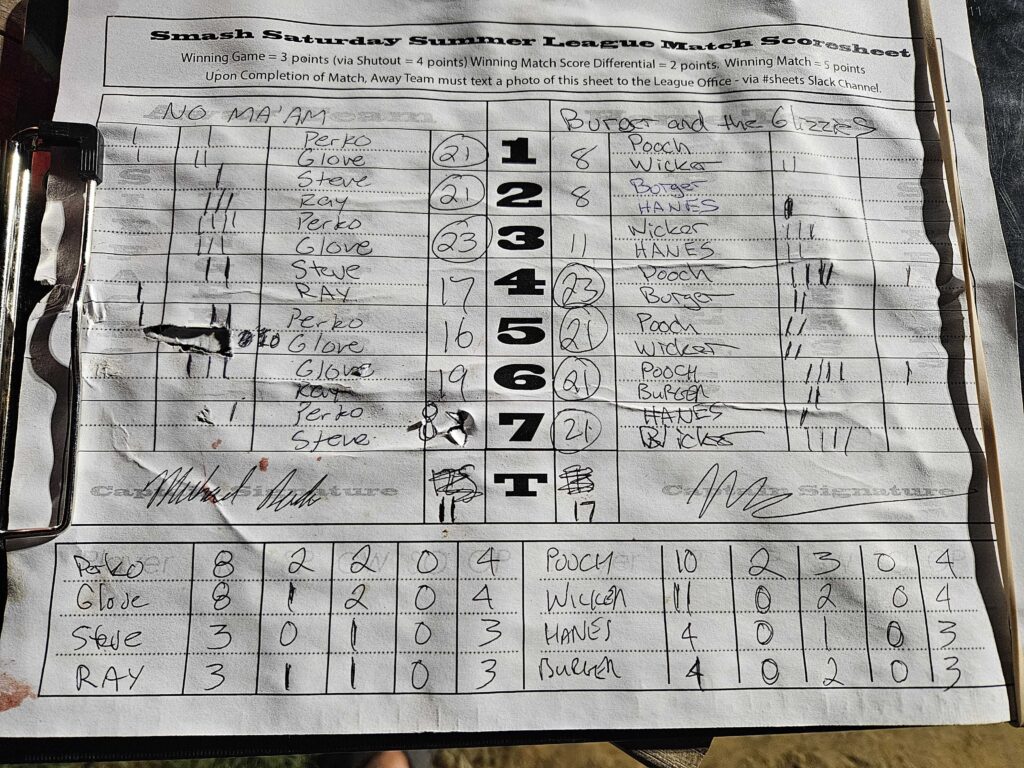 Smash Saturday Summer League Match Scoresheet
Winning Game = 3 points (via Shutout = 4 points) Winning Match Score Differential = 2 points. Winning Match = 5 points
Upon Completion of Match, Away Team must text a photo of this sheet to the League Office - via #sheets Slack Channel.
NO MA'AM Burger and the Glizzies
| || Perko 21 1 8 Pooch
| || Glove Wicker ||
| Steve 21 2 8 Burger
||| Ray HANES
|||| Perko 23 3 11 Wicker |||
||| Glove HANES ||
|| Steve 17 4 23 Pooch |||| |
| RAY Burger ||
| || Perko 16 5 21 Pooch ||
Glove Wicker ||
||| Glove 19 6 21 POOCH |||| |
Ray BURGER ||
| Perko 8 7 21 HANES |
Steve Wicker ||||
Captain Signature T Captain Signature
11 17
Perko 8 2 2 0 4 POOCH 10 2 3 0 4
Glove 8 1 2 0 4 WICKER 11 0 2 0 4
Steve 3 0 1 0 3 HANES 4 0 1 0 3
RAY 3 1 1 0 3 BURGER 4 0 2 0 3